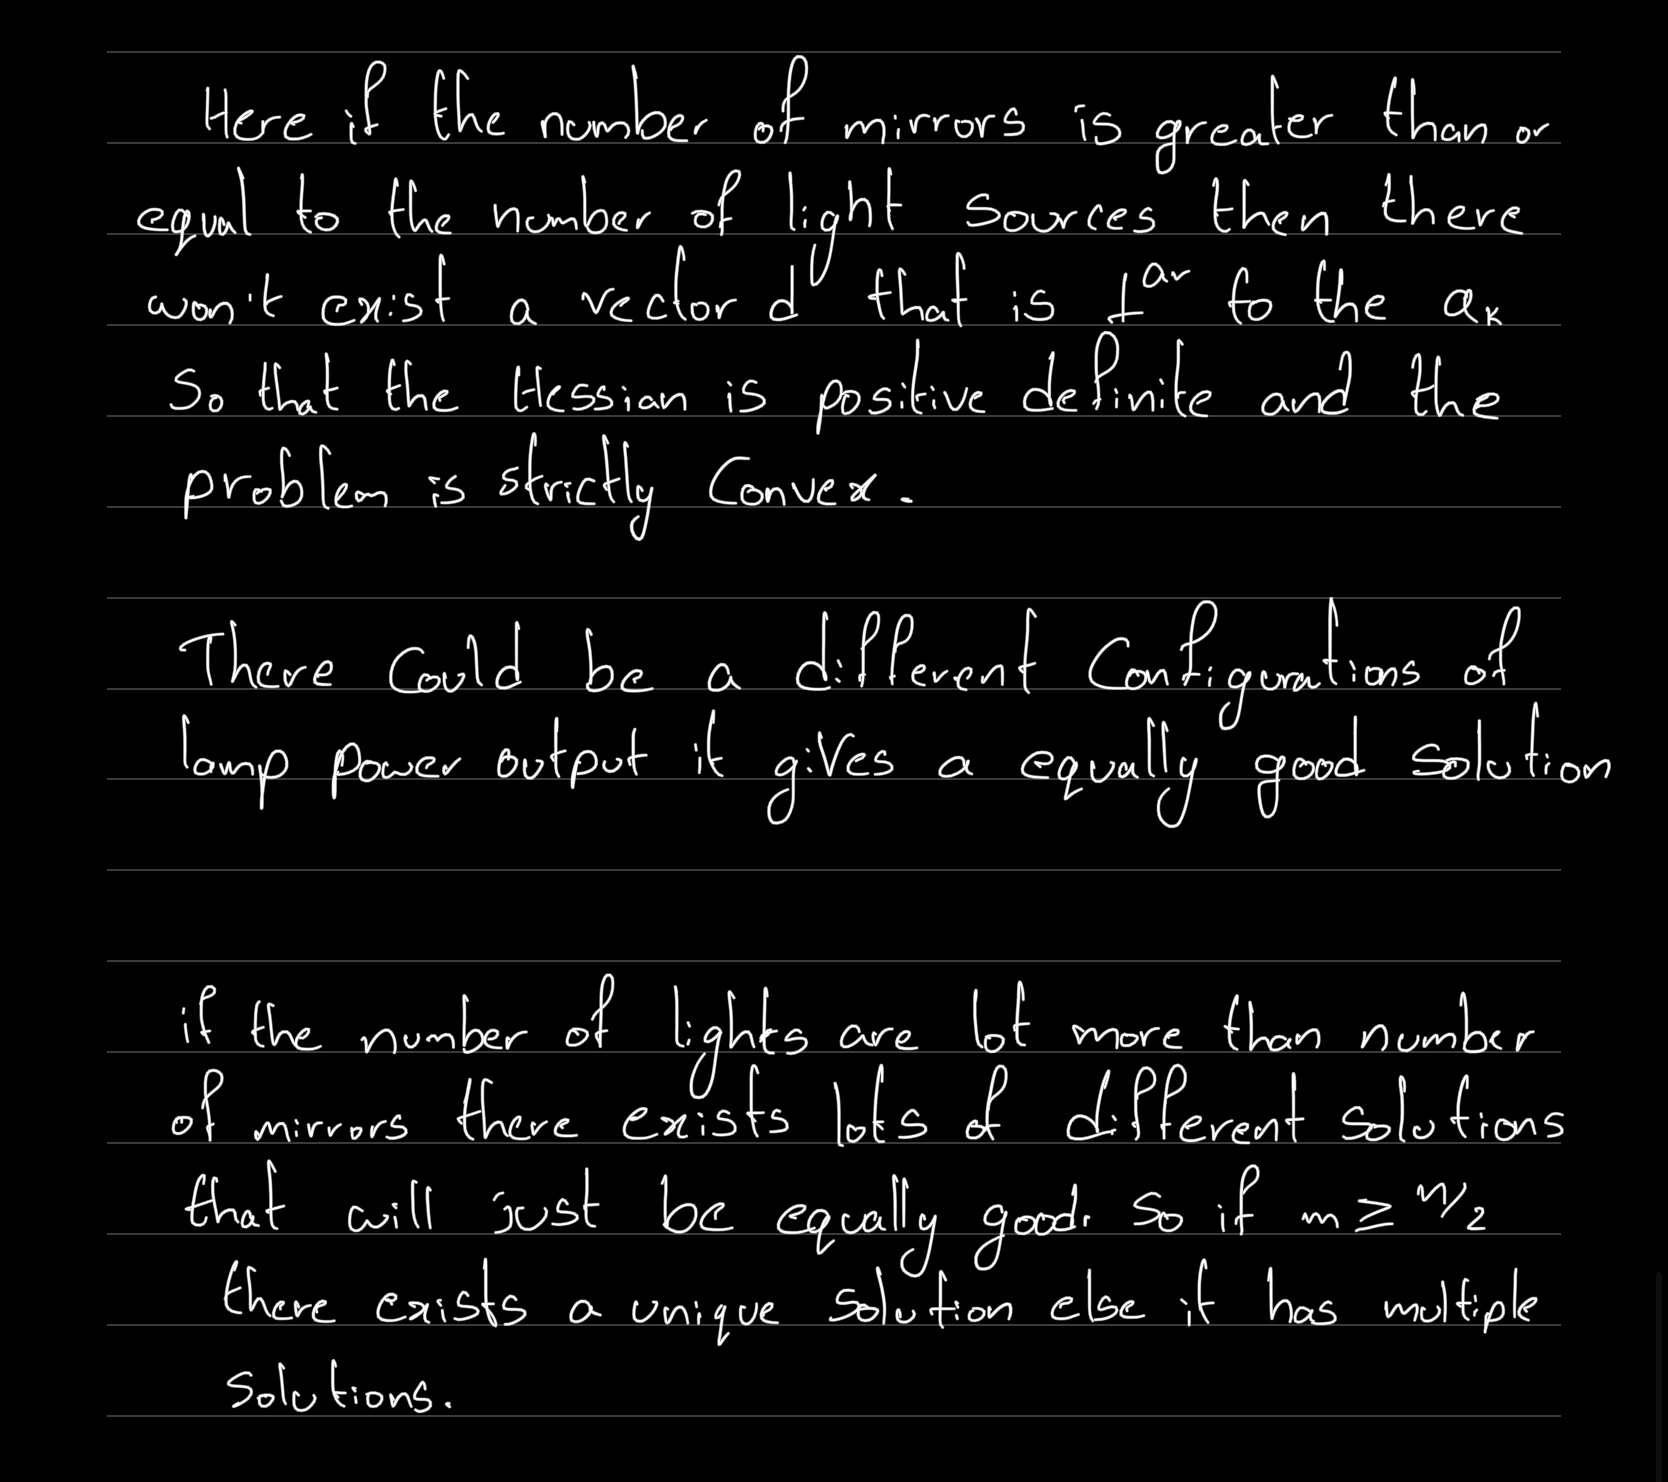 Here if the number of mirrors is greater than or
equal to the number of light sources then there
won't exist a vector d that is ⊥ar to the ak
So that the Hessian is positive definite and the
problem is strictly Convex.
There Could be a different Configurations of
lamp power output it gives a equally good solution
if the number of lights are lot more than number
of mirrors there exists lots of different solutions
that will just be equally good. So if m ≥ n/2
there exists a unique solution else it has multiple
solutions.